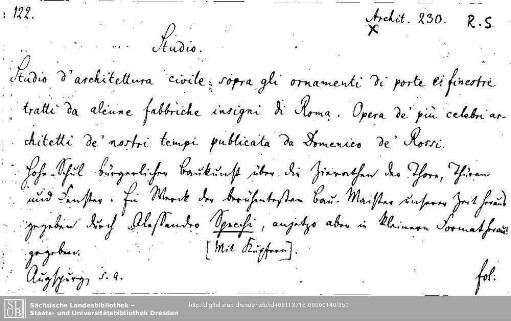 : 122.
Archit. 230. R.S
x
Studio.
Studio d'architettura civile; sopra gli ornamenti di porte e finestri
tratti da alcune fabbriche insigni di Roma. Opera de' più celebri ar-
chitetti de' nostri tempi publicata da Domenico de' Rossi.
Hohe Schul bürgerlicher Baukunst über die Zierathen der Thore, Thüren
und Fenster. Ein Werck der berühmtesten Bau-Maister unserer Zeit heraus
gegeben durch Alessandro Specchi, anjetzo aber in kleinern Format heraus
gegeben.
[Mit Kupfern].
Augspurg, s. a.
fol.
SLUB
Sächsische Landesbibliothek –
Staats- und Universitätsbibliothek Dresden